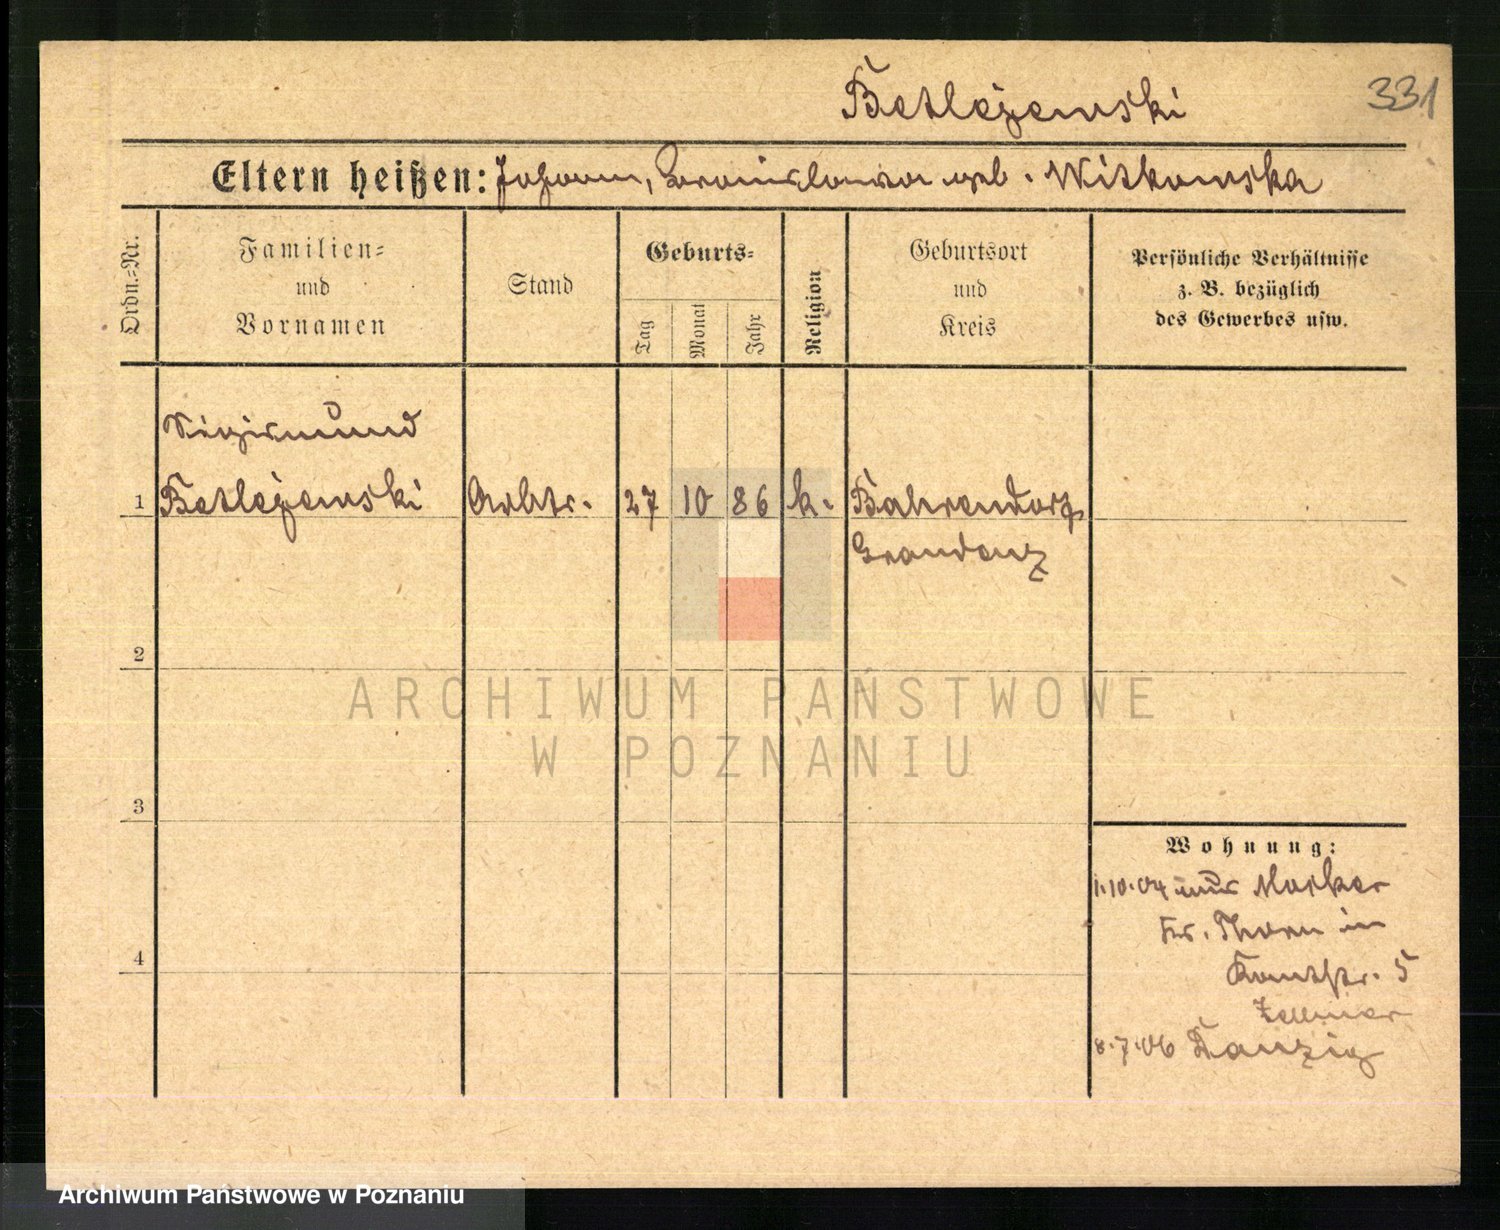 Betlejewski
331
Eltern heißen: Johann, Bronislawa geb. Witkowska
Ordn.-Nr.
Familien-
und
Vornamen
Stand
Geburts-
Tag
Monat
Jahr
Religion
Geburtsort
und
Kreis
Persönliche Verhältnisse
z. B. bezüglich
des Gewerbes usw.
Sigismund
1 Betlejewski Arbtr. 27 10 86 k. Bahrendorf
Graudenz
2
ARCHIWUM PAŃSTWOWE
W POZNANIU
3
Wohnung:
1.10.04 aus Mocker
Kr. Thorn in
4
5
8.7.06 Danzig
Archiwum Państwowe w Poznaniu